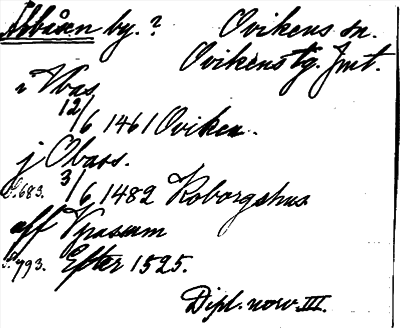 Åbbåsen by.? Ovikens sn.
Ovikens tg. Jmt.
i Vbas
12/6 1461 Oviken.
j Obass.
S. 683. 3/6 1482 Roborgshus
aff Vpasæm
S. 793. Efter 1525.
Dipl. norv. III.